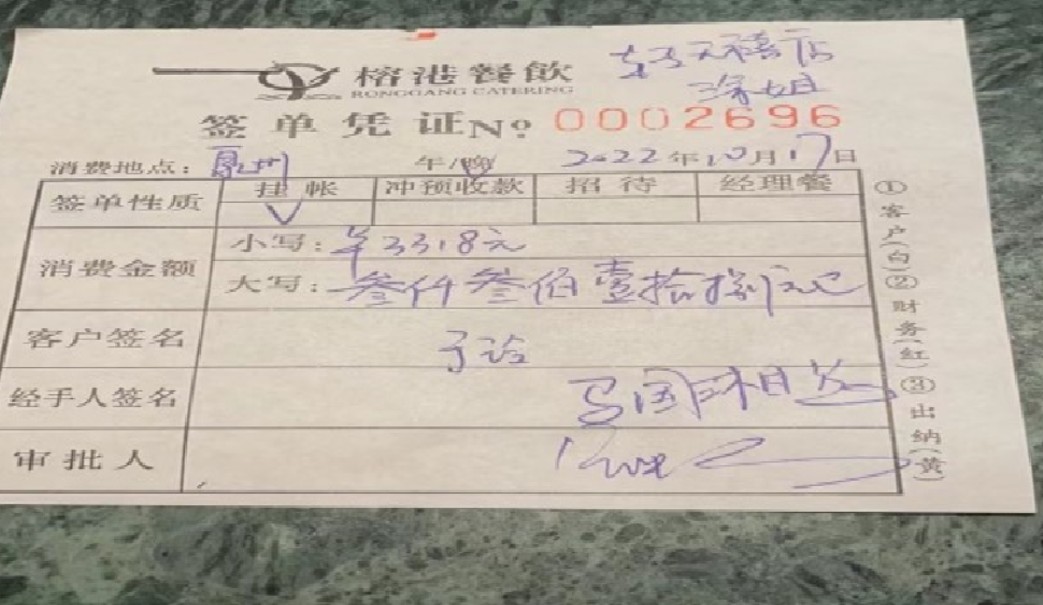 榕港餐飲
RONGGANG CATERING
天禧店
签单凭证No 0002696
消费地点:
2022年10月17日
签单性质 挂帐 冲预收款 招待 经理餐
√
消费金额 小写:¥3318元
大写:叁仟叁佰壹拾捌元
客户签名
经手人签名
审批人
①客户(白)②财务(红)③出纳(黄)